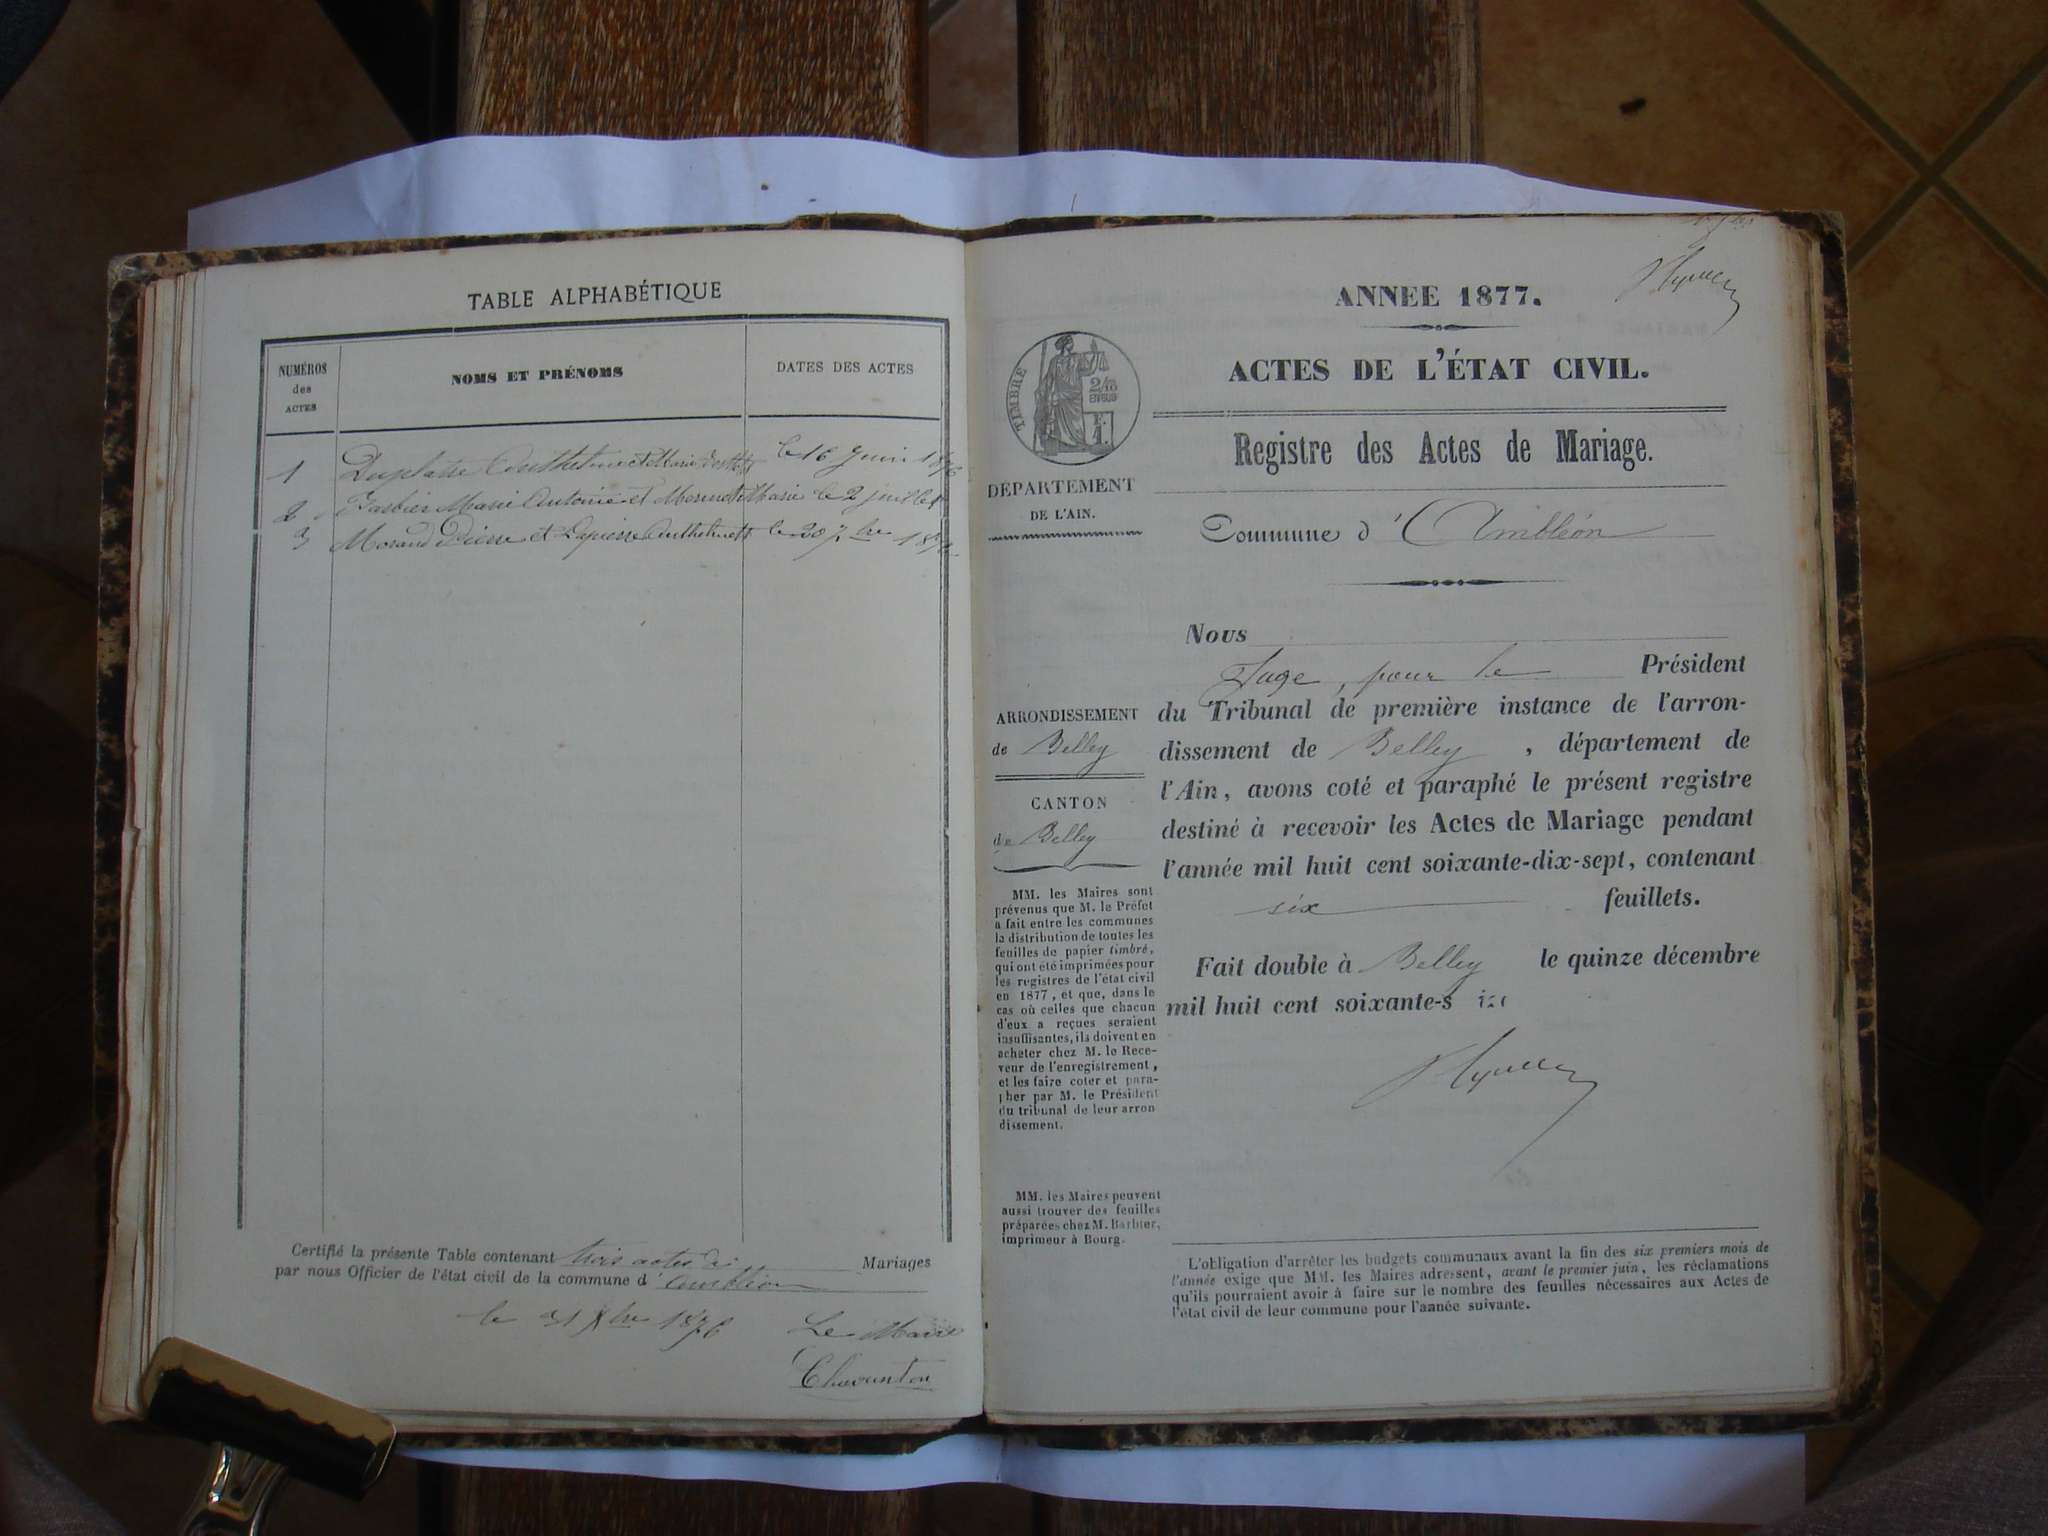 TABLE ALPHABÉTIQUE
NUMÉROS
des
ACTES
NOMS ET PRÉNOMS
DATES DES ACTES
1 Anthelme et Marie le 16 Juin 1876
2 Barbier Marie Antoine et Marie le 2 juillet
3 Morand Pierre et Lapierre Anthelmette le 20 7bre 1876
Certifié la présente Table contenant trois actes de Mariages
par nous Officier de l'état civil de la commune d' Ambléon
le 31 Xbre 1876
Le Maire
ANNÉE 1877.
ACTES DE L'ÉTAT CIVIL.
Registre des Actes de Mariage.
Commune d' Ambléon
TIMBRE
DÉPARTEMENT
DE L'AIN.
ARRONDISSEMENT
de Belley
CANTON
de Belley
MM. les Maires sont
prévenus que M. le Préfet
a fait entre les communes
la distribution de toutes les
feuilles de papier timbré,
qui ont été imprimées pour
les registres de l'état civil
en 1877, et que, dans le
cas où celles que chacun
d'eux a reçues seraient
insuffisantes, ils doivent en
acheter chez M. le Rece-
veur de l'enregistrement,
et les faire coter et para-
pher par M. le Président
du tribunal de leur arron
dissement.
MM. les Maires peuvent
aussi trouver des feuilles
préparées chez M. Barbier,
imprimeur à Bourg.
Nous
Juge, pour le Président
du Tribunal de première instance de l'arron-
dissement de Belley, département de
l'Ain, avons coté et paraphé le présent registre
destiné à recevoir les Actes de Mariage pendant
l'année mil huit cent soixante-dix-sept, contenant
six feuillets.
Fait double à Belley le quinze décembre
mil huit cent soixante-s
L'obligation d'arrêter les budgets communaux avant la fin des six premiers mois de
l'année exige que MM. les Maires adressent, avant le premier juin, les réclamations
qu'ils pourraient avoir à faire sur le nombre des feuilles nécessaires aux Actes de
l'état civil de leur commune pour l'année suivante.